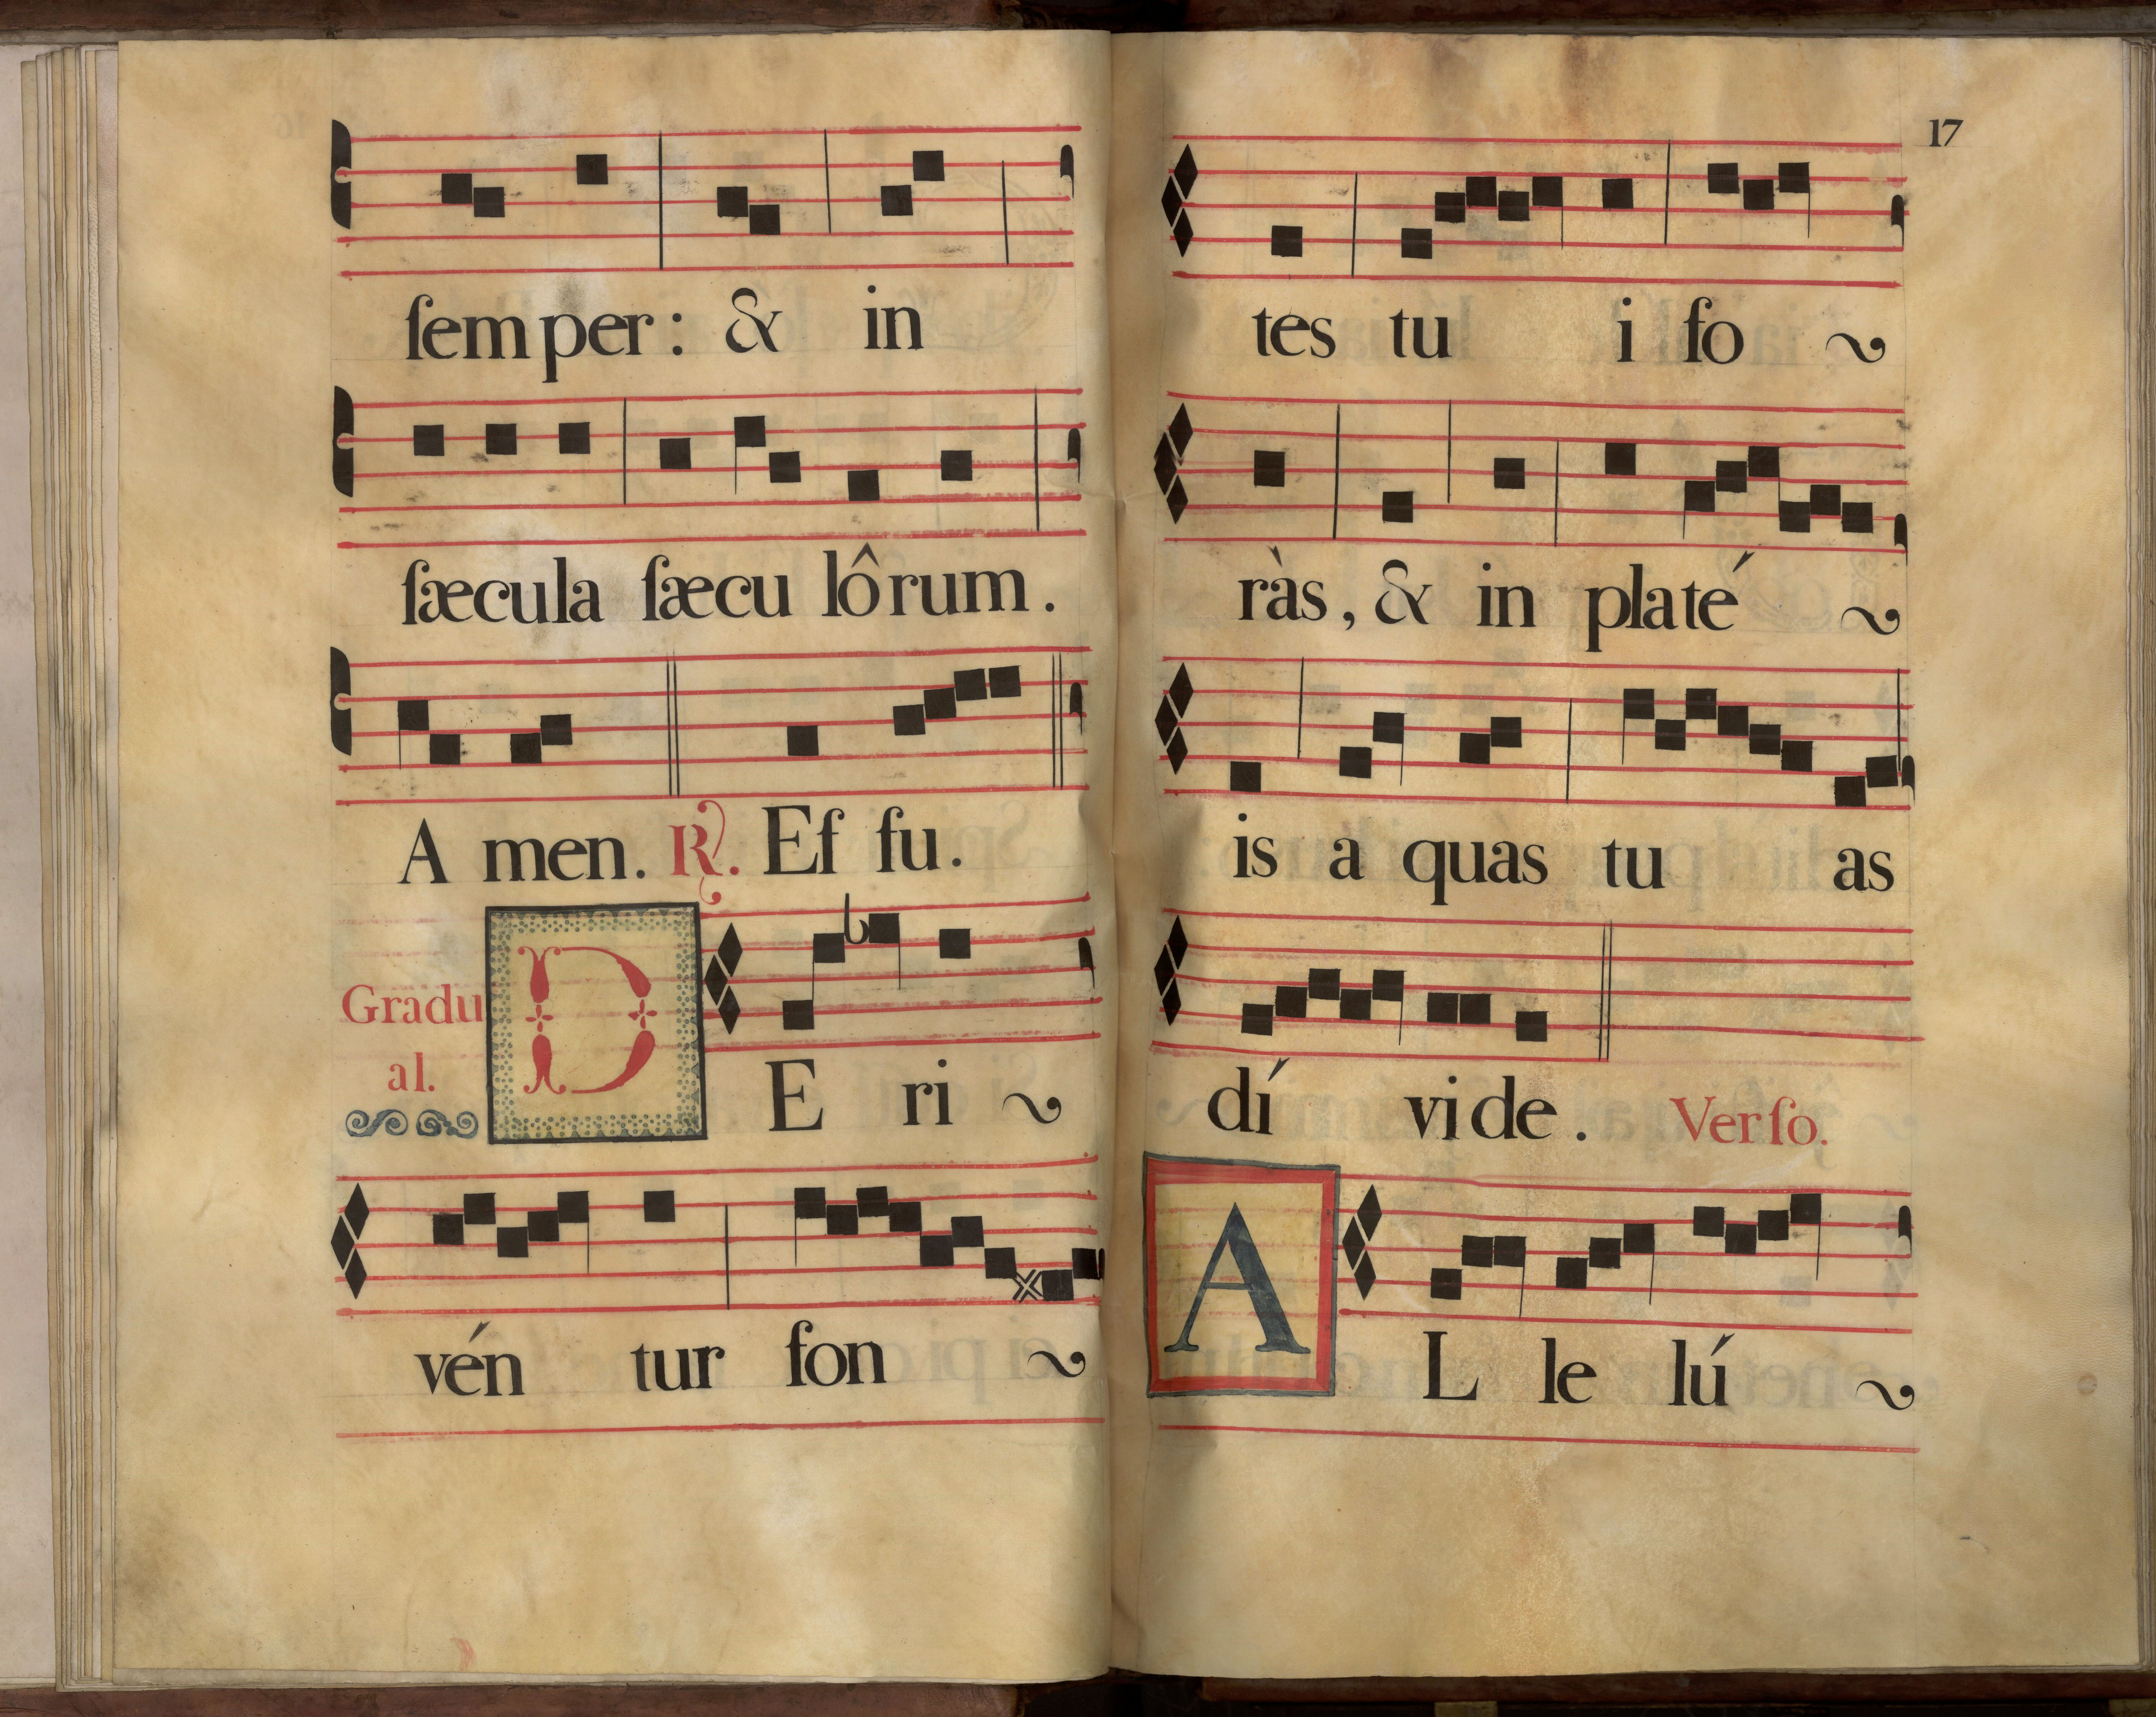 ſem per : & in
ſæcula ſæcu lôrum.
A men. ℟. Ef fu.
Gradu
al.
D E ri ~
vén tur fon ~
17
tes tu i fo ~
ràs, & in platé ~
is a quas tu as
dí vi de. Verſo.
A L le lú ~